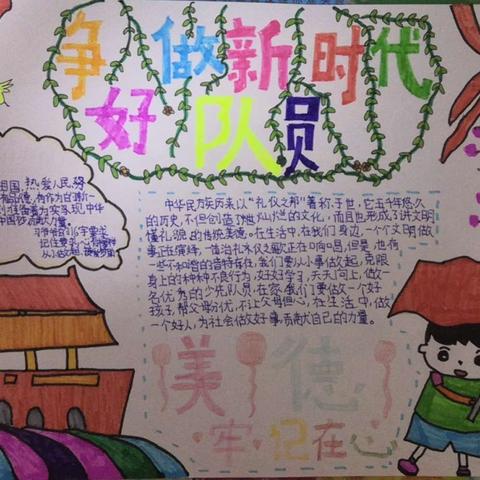 争做新时代
好队员
祖国,热爱人民,努
中华民族历来以"礼仪之邦"著称于世,它五千年悠久
的历史,不但创造了灿烂的文化,而且也形成了讲文明
懂礼貌的传统美德。在生活中,在我们身边,一个个文明故
事正在演绎,一首首礼木仪之歌正在口向唱,但是,也有
一些不和谐的音符存在,我们要从小事做起,克服
身上的种种不良行为,好好学习,天天向上,做一
名优秀的少先队员,在家,我们要做一个好
孩子,帮父母分忧,不让父母担心,在生活中,做
一个好人,为社会做好事,贡献自己的力量。
美德
牢记在心